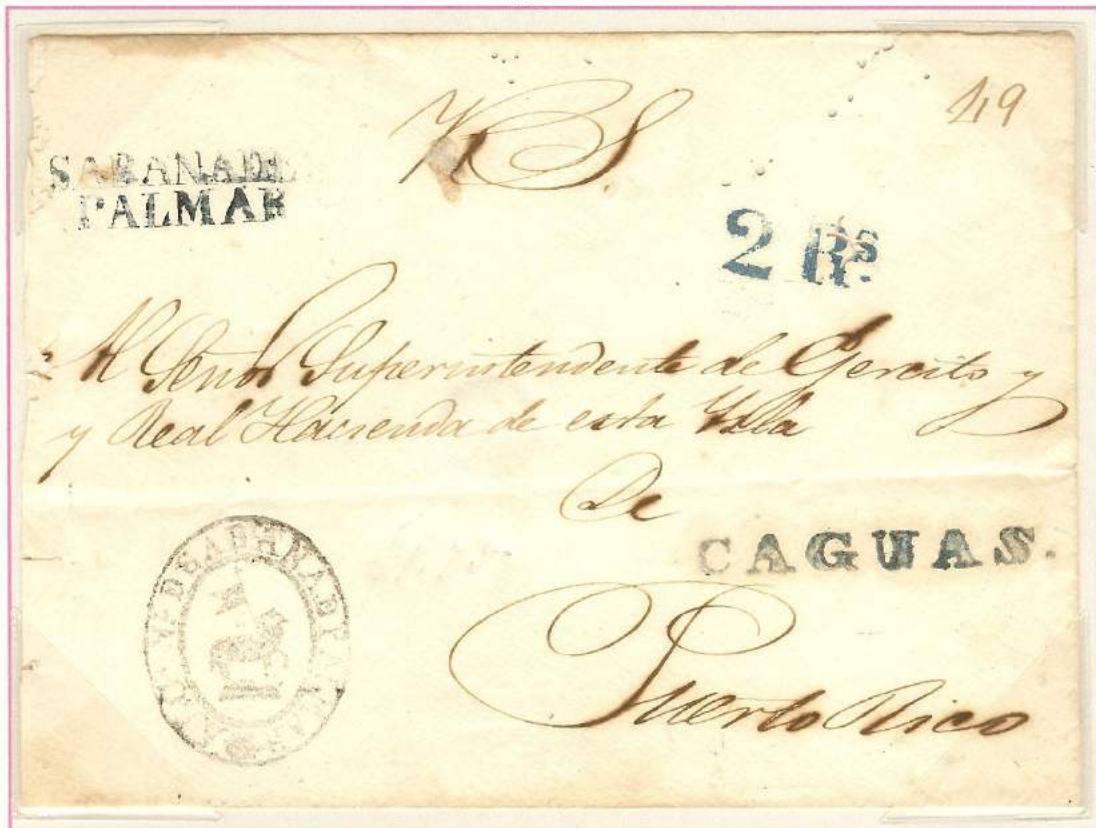 49
SABANA DEL
PALMAR
2 Rs.
Al Señor Superintendente de Egercito y
y Real Hacienda de esta Ysla
De
CAGUAS.
Puerto Rico